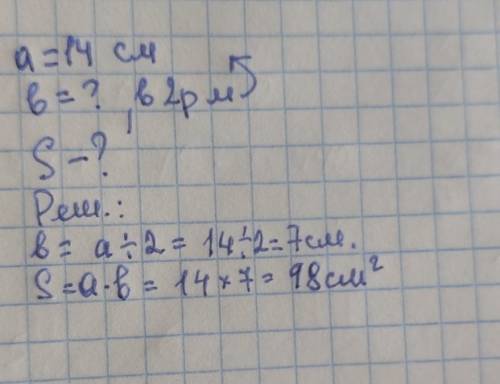 a = 14 см
в = ?, в 2р м
S - ?
Реш.:
в = a ÷ 2 = 14 ÷ 2 = 7см.
S = a · в = 14 × 7 = 98см²